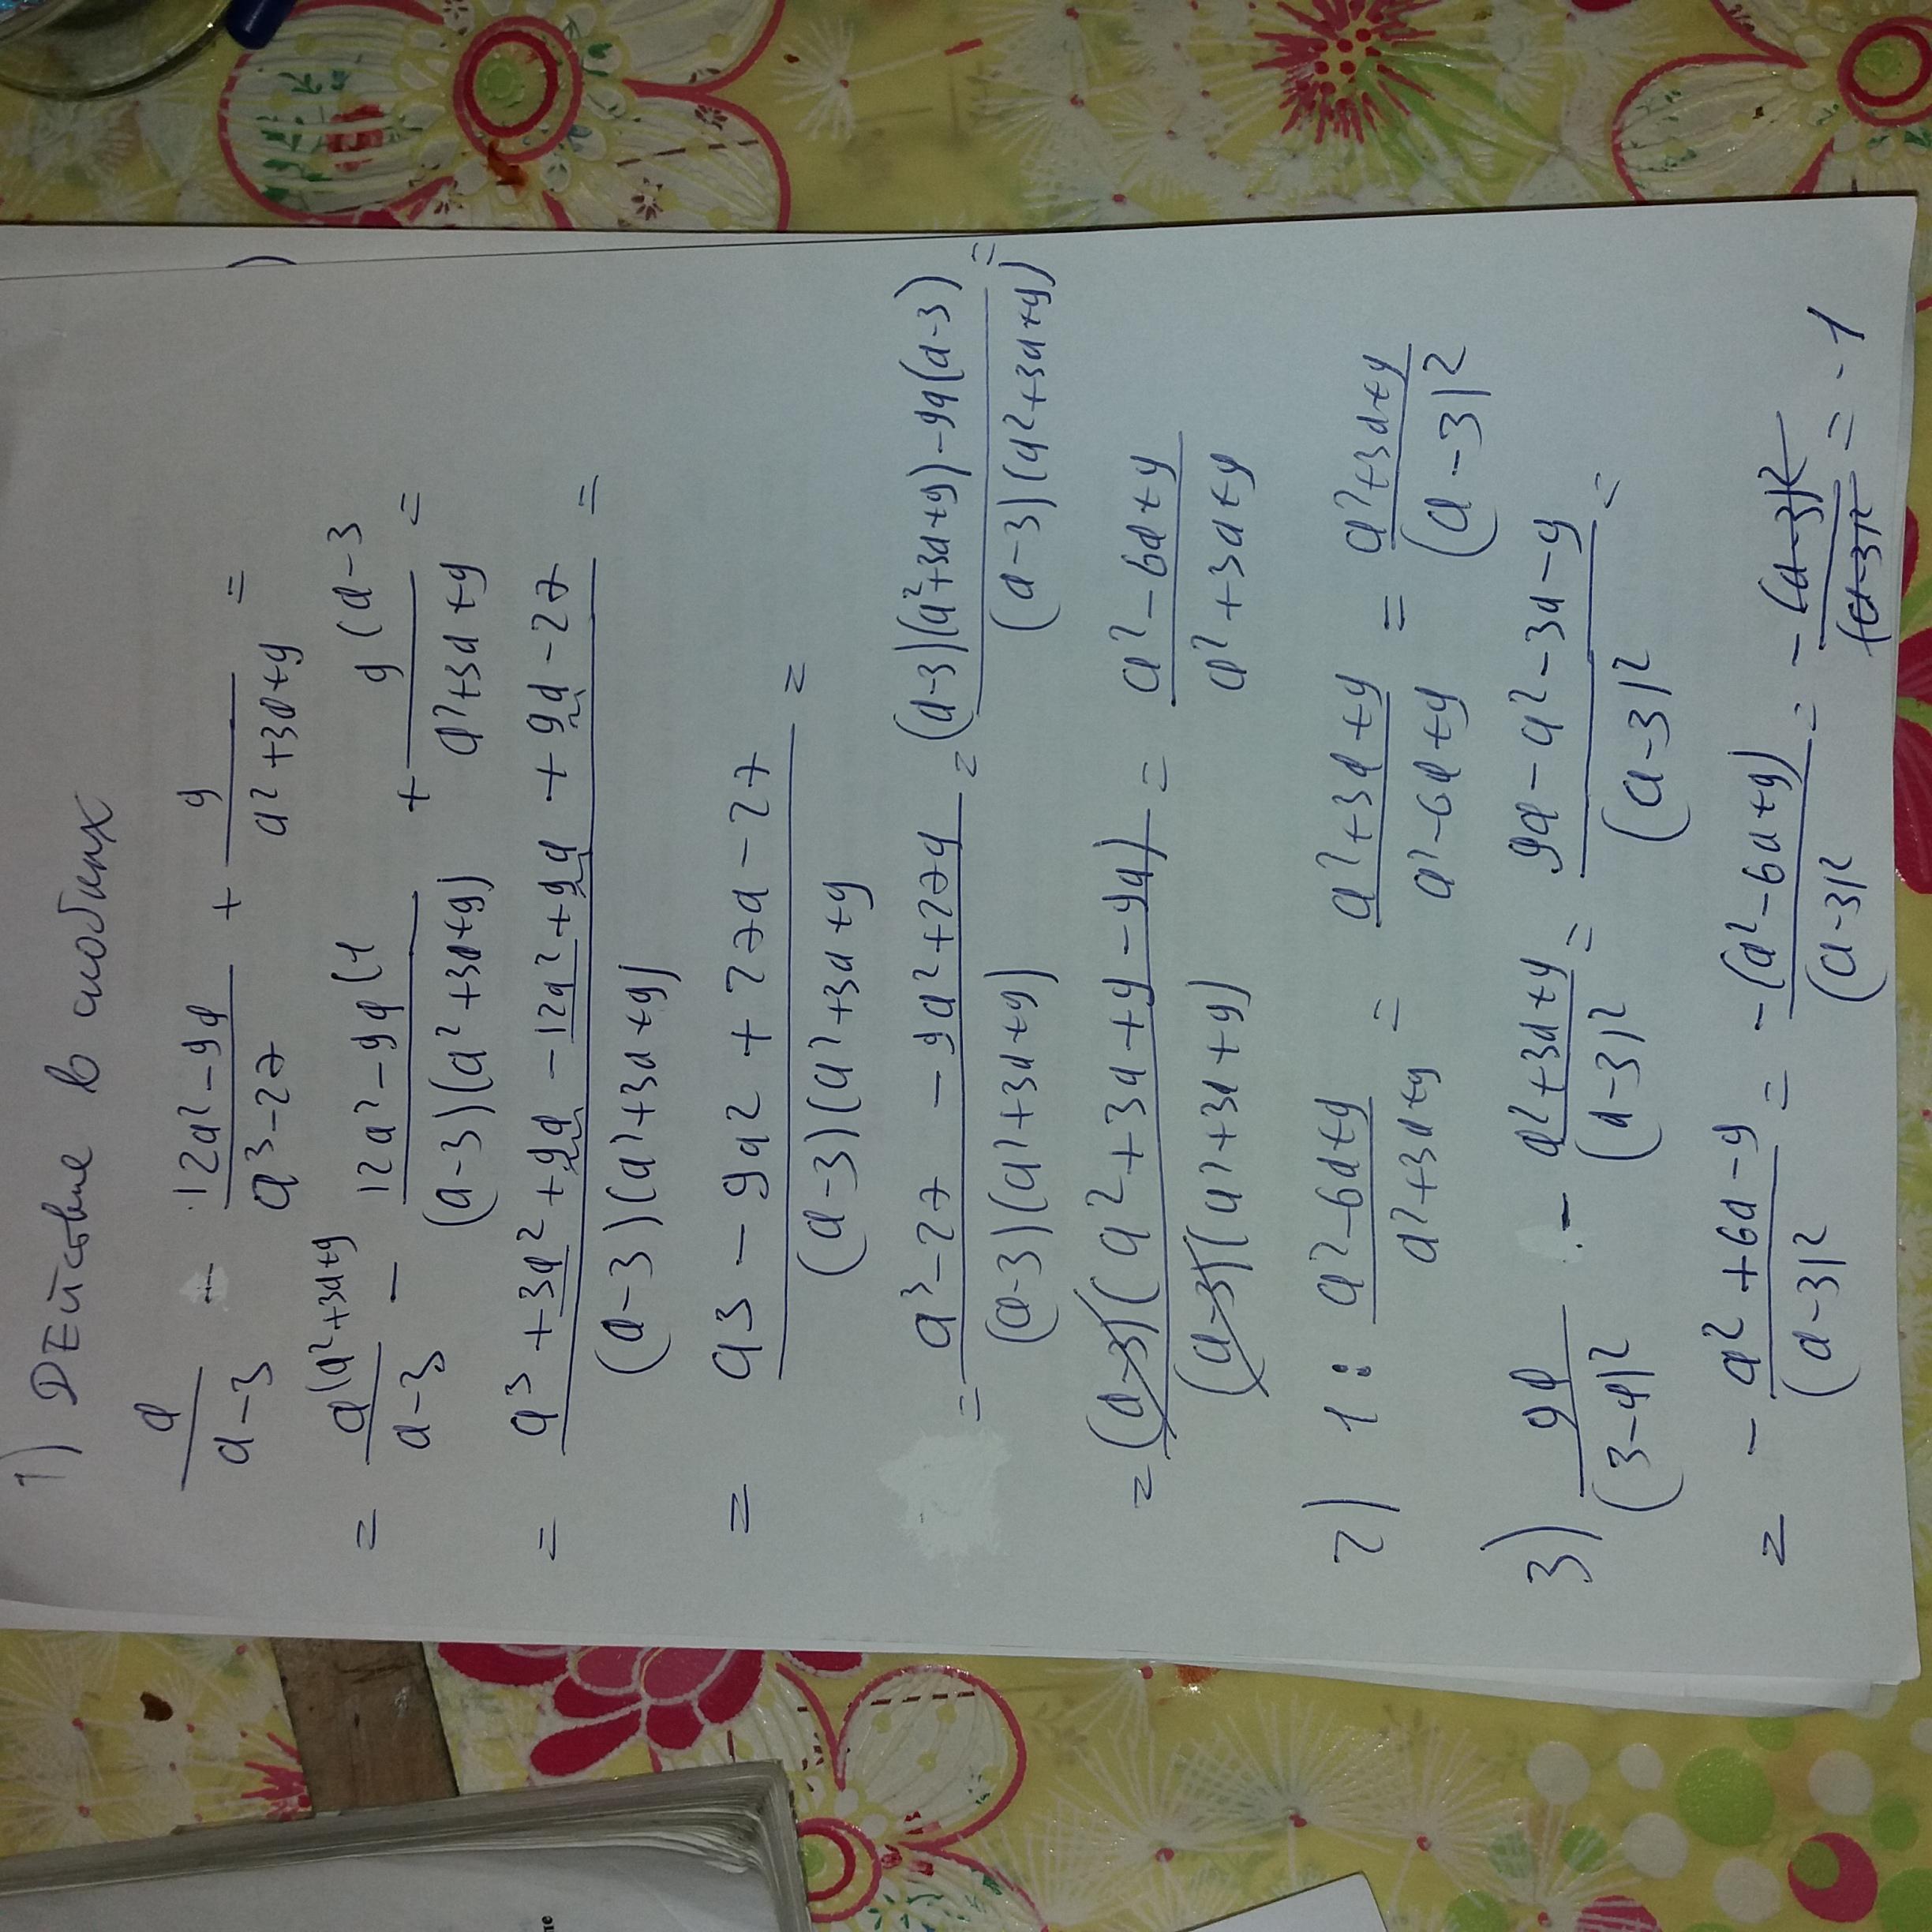 1) Действие в скобках
a/(a-3) - (12a²-9a)/(a³-27) + 9/(a²+3a+9) =
= a(a²+3a+9/(a-3) - 12a²-9a(1/((a-3)(a²+3a+9)) + 9(a-3/(a²+3a+9) =
= (a³+3a²+9a-12a²+9a+9a-27)/((a-3)(a²+3a+9)) =
= (a3-9a2+27a-27)/((a-3)(a²+3a+9) =
= (a³-27-9a²+27a)/((a-3)(a²+3a+9)) = ((a-3)(a²+3a+9)-9a(a-3))/((a-3)(a²+3a+9)) =
= ((a-3)(a²+3a+9-9a))/((a-3)(a²+3a+9)) = (a²-6a+9)/(a²+3a+9)
2) 1 : (a²-6a+9)/(a²+3a+9) = (a²+3a+9)/(a²-6a+9) = (a²+3a+9)/(a-3)²
3) 9a/(3-a)² - (a²+3a+9)/(a-3)² = (9a-a²-3a-9)/(a-3)² =
= (-a²+6a-9)/(a-3)² = -(a²-6a+9)/(a-3)² = -(a-3)²/(a-3)² = -1